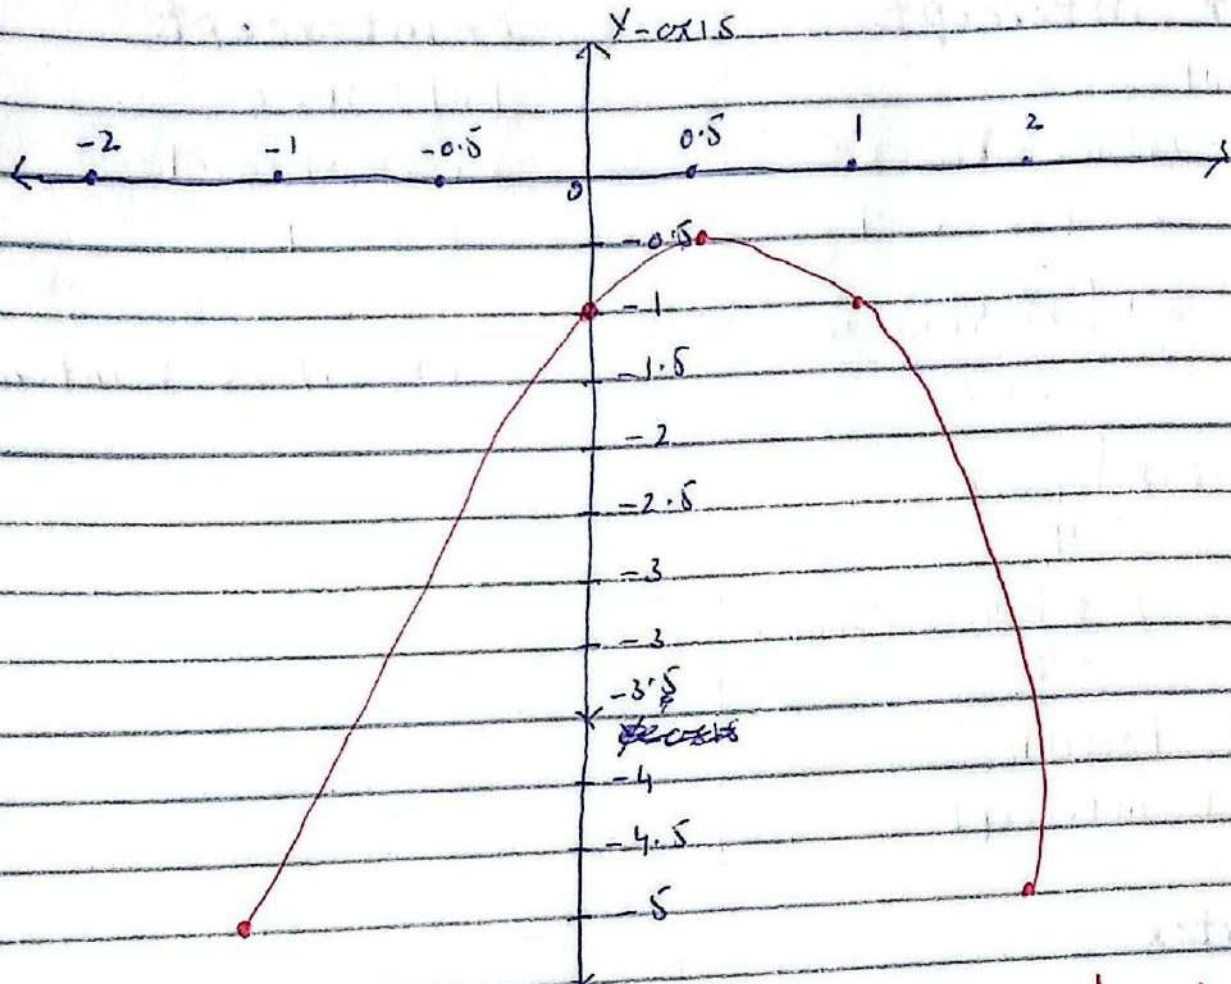 Y-axis
-2 -1 -0.5 0.5 1 2
0
-0.5
-1
-1.5
-2
-2.5
-3
-3
-3.5
-4
-4.5
-5